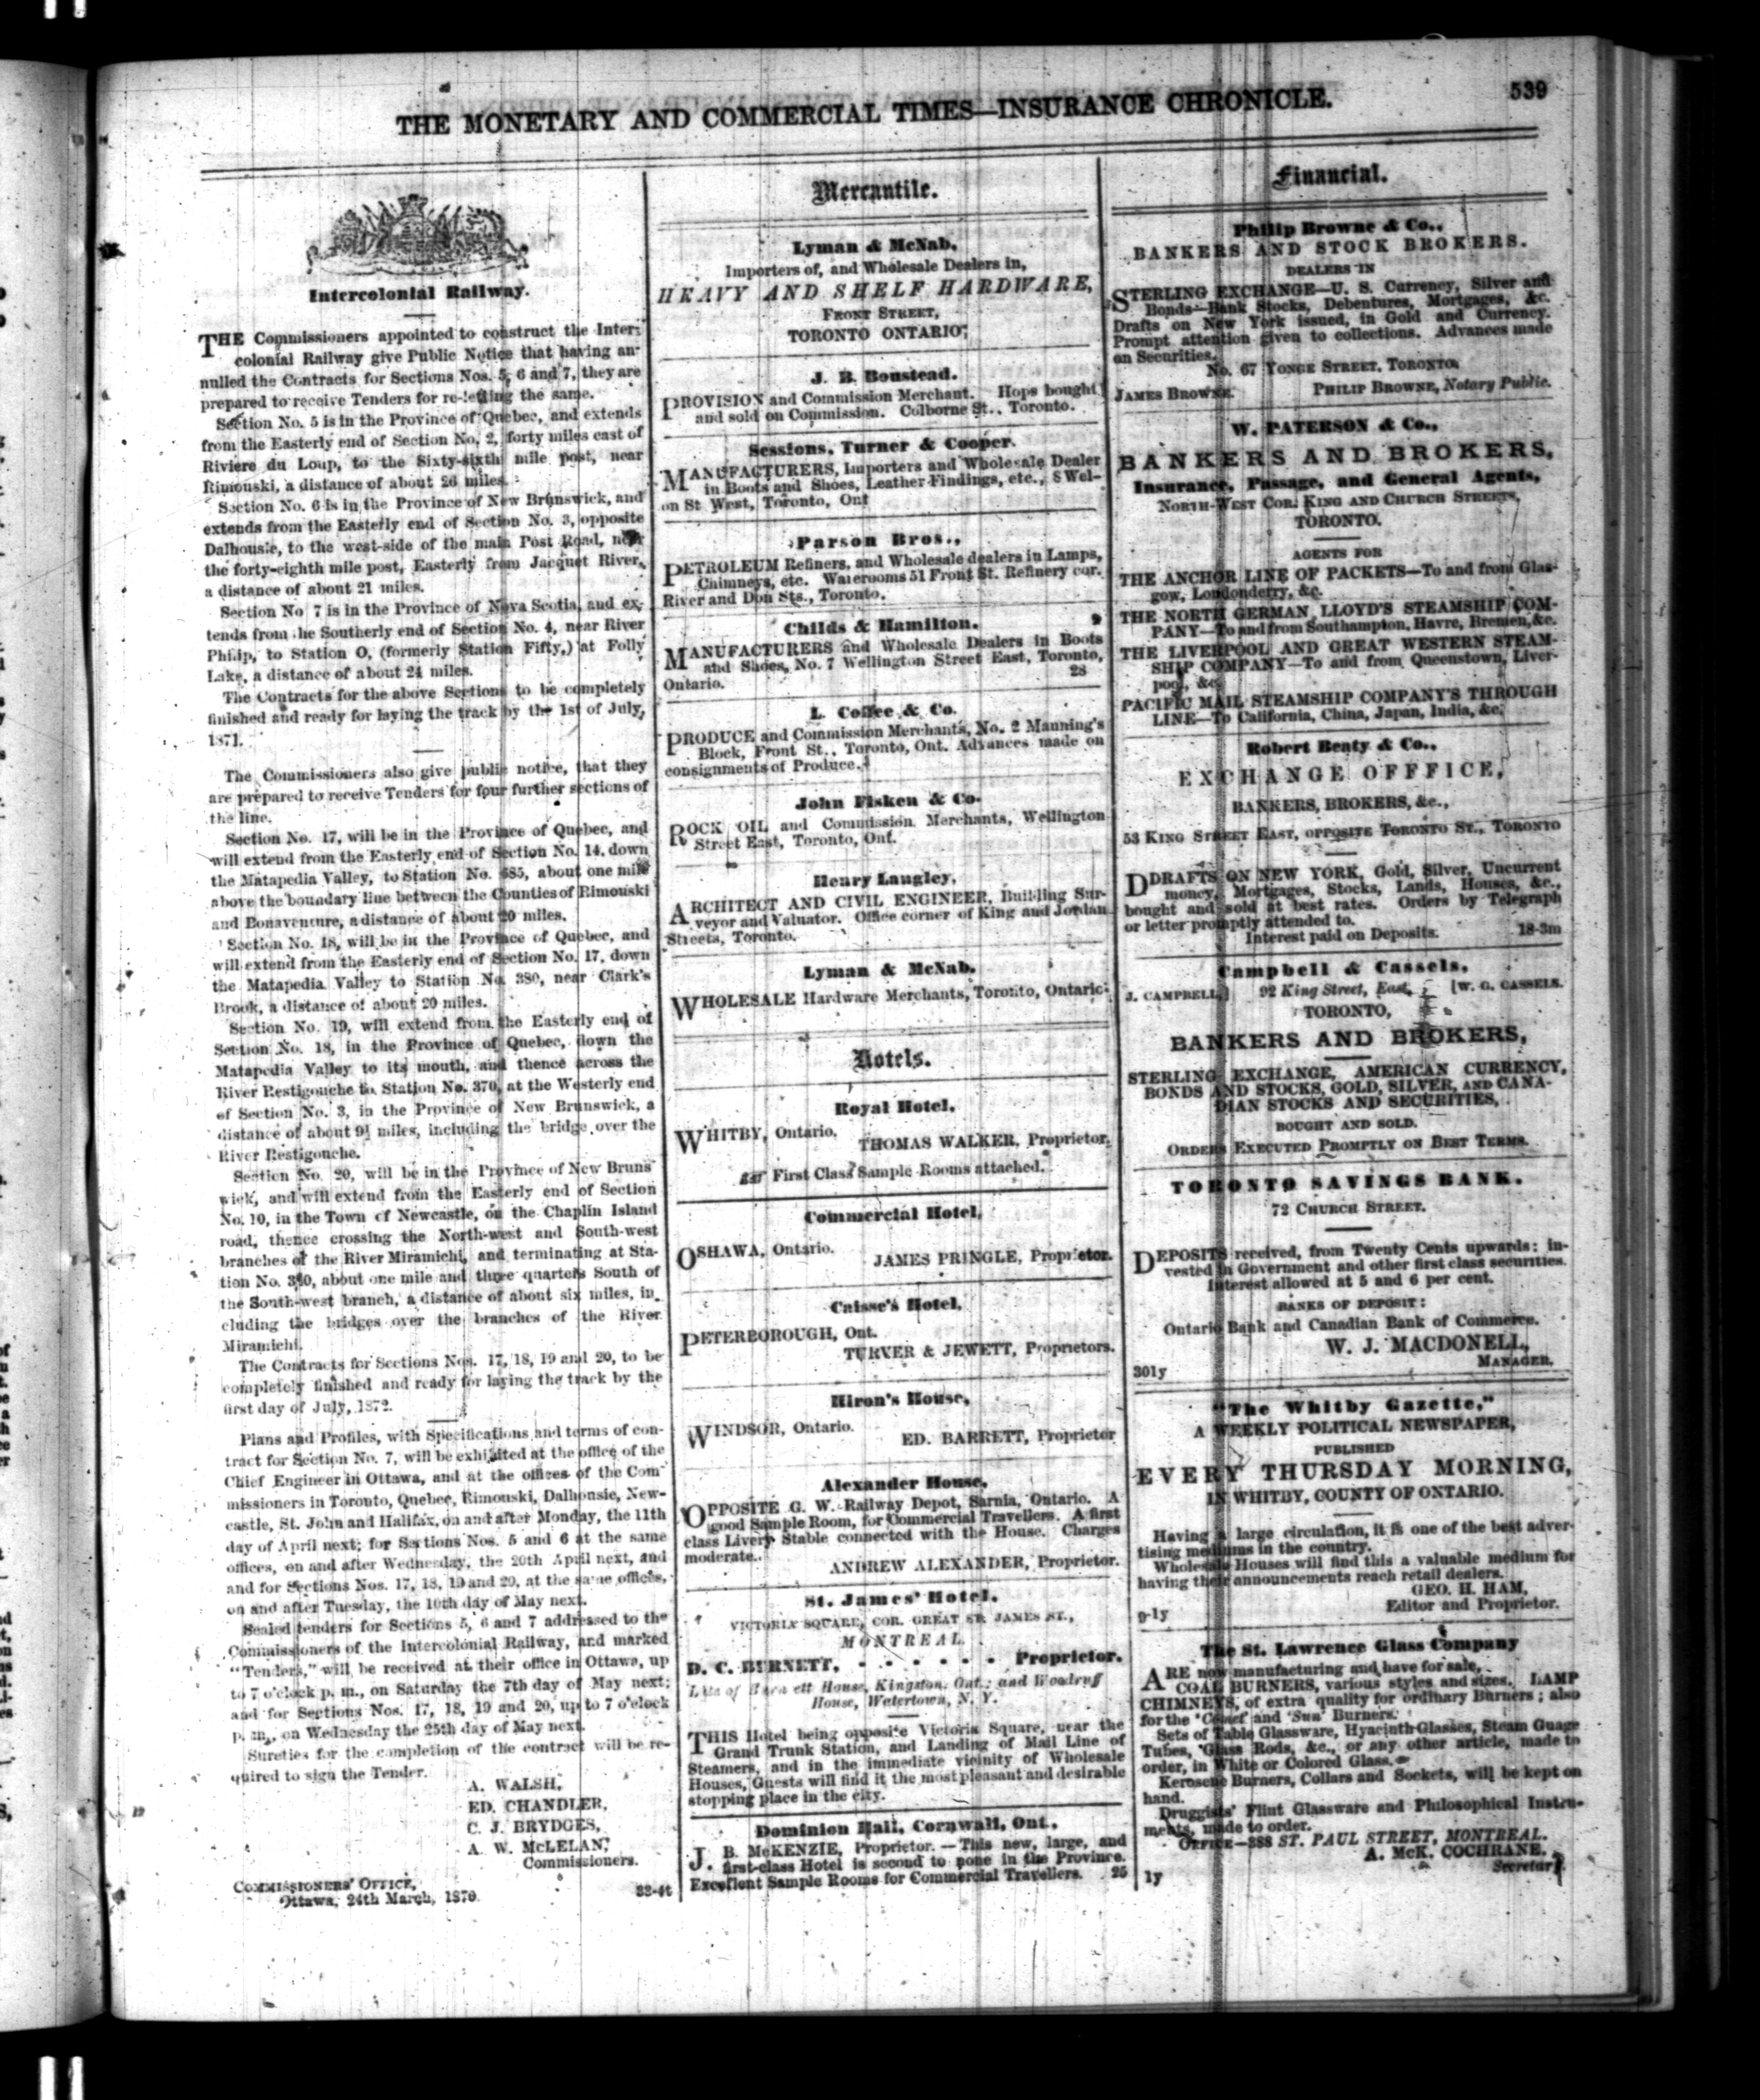 THE MONETARY AND COMMERCIAL TIMES—INSURANCE CHRONICLE.
539
Intercolonial Railway.
THE Commissioners appointed to construct the Inter-
colonial Railway give Public Notice that having an-
nulled the Contracts for Sections Nos. 5, 6 and 7, they are
prepared to receive Tenders for re-letting the same.
Section No. 5 is in the Province of Quebec, and extends
from the Easterly end of Section No. 2, forty miles east of
Riviere du Loup, to the Sixty-sixth mile post, near
Rimouski, a distance of about 26 miles.
Section No. 6 is in the Province of New Brunswick, and
extends from the Easterly end of Section No. 3, opposite
Dalhousie, to the west-side of the main Post Road, near
the forty-eighth mile post, Easterly from Jacquet River,
a distance of about 21 miles.
Section No 7 is in the Province of Nova Scotia, and ex-
tends from he Southerly end of Section No. 4, near River
Philip, to Station O, (formerly Station Fifty,) at Folly
Lake, a distance of about 24 miles.
The Contracts for the above Sections to be completely
finished and ready for laying the track by the 1st of July,
1871.
The Commissioners also give public notice, that they
are prepared to receive Tenders for four further sections of
the line.
Section No. 17, will be in the Province of Quebec, and
will extend from the Easterly end of Section No. 14, down
the Matapedia Valley, to Station No. 685, about one mile
above the boundary line between the Counties of Rimouski
and Bonaventure, a distance of about 20 miles.
Section No. 18, will be in the Province of Quebec, and
will extend from the Easterly end of Section No. 17, down
the Matapedia Valley to Station No. 380, near Clark's
Brook, a distance of about 20 miles.
Section No. 19, will extend from the Easterly end of
Section No. 18, in the Province of Quebec, down the
Matapedia Valley to its mouth, and thence across the
River Restigouche to Station No. 370, at the Westerly end
of Section No. 3, in the Province of New Brunswick, a
distance of about 9½ miles, including the bridge over the
River Restigouche.
Section No. 20, will be in the Province of New Bruns
wick, and will extend from the Easterly end of Section
No. 10, in the Town of Newcastle, on the Chaplin Island
road, thence crossing the North-west and South-west
branches of the River Miramichi, and terminating at Sta-
tion No. 320, about one mile and three quarters South of
the South-west branch, a distance of about six miles, in-
cluding the bridges over the branches of the River
Miramichi.
The Contracts for Sections Nos. 17, 18, 19 and 20, to be
completely finished and ready for laying the track by the
first day of July, 1872.
Plans and Profiles, with Specifications and terms of con-
tract for Section No. 7, will be exhibited at the office of the
Chief Engineer in Ottawa, and at the offices of the Com
missioners in Toronto, Quebec, Rimouski, Dalhousie, New-
castle, St. John and Halifax, on and after Monday, the 11th
day of April next; for Sections Nos. 5 and 6 at the same
offices, on and after Wednesday, the 20th April next, and
and for Sections Nos. 17, 18, 19 and 20, at the same offices,
on and after Tuesday, the 10th day of May next.
Sealed tenders for Sections 5, 6 and 7 addressed to the
Commissioners of the Intercolonial Railway, and marked
"Tenders," will be received at their office in Ottawa, up
to 7 o'clock p. m., on Saturday the 7th day of May next;
and for Sections Nos. 17, 18, 19 and 20, up to 7 o'clock
p. m., on Wednesday the 25th day of May next.
Sureties for the completion of the contract will be re-
quired to sign the Tender.
A. WALSH,
ED. CHANDLER,
C. J. BRYDGES,
A. W. McLELAN,
Commissioners.
COMMISSIONERS' OFFICE,
Ottawa, 24th March, 1870.
32-4t
Mercantile.
Lyman & McNab,
Importers of, and Wholesale Dealers in,
HEAVY AND SHELF HARDWARE,
FRONT STREET,
TORONTO ONTARIO,
J. B. Boustead.
PROVISION and Commission Merchant. Hops bought
and sold on Commission. Colborne St., Toronto.
Sessions, Turner & Cooper.
MANUFACTURERS, Importers and Wholesale Dealer
in Boots and Shoes, Leather Findings, etc., 8 Wel-
on St West, Toronto, Ont
Parson Bros.,
PETROLEUM Refiners, and Wholesale dealers in Lamps,
Chimneys, etc. Waterooms 51 Front St. Refinery cor.
River and Don Sts., Toronto.
Childs & Hamilton.
MANUFACTURERS and Wholesale Dealers in Boots
and Shoes, No. 7 Wellington Street East, Toronto,
Ontario. 28
L. Coffee & Co.
PRODUCE and Commission Merchants, No. 2 Manning's
Block, Front St., Toronto, Ont. Advances made on
consignments of Produce.
John Fisken & Co.
ROCK OIL and Commission Merchants, Wellington
Street East, Toronto, Ont.
Henry Langley,
ARCHITECT AND CIVIL ENGINEER, Building Sur-
veyor and Valuator. Office corner of King and Jordan
Streets, Toronto.
Lyman & McNab.
WHOLESALE Hardware Merchants, Toronto, Ontario.
Hotels.
Royal Hotel,
WHITBY, Ontario.
THOMAS WALKER, Proprietor.
First Class Sample Rooms attached.
Commercial Hotel,
OSHAWA, Ontario.
JAMES PRINGLE, Proprietor.
Caisse's Hotel,
PETERBOROUGH, Ont.
TURVER & JEWETT, Proprietors.
Hiron's House,
WINDSOR, Ontario.
ED. BARRETT, Proprietor
Alexander House,
OPPOSITE G. W. Railway Depot, Sarnia, Ontario. A
good Sample Room, for Commercial Travellers. A first
class Livery Stable connected with the House. Charges
moderate.
ANDREW ALEXANDER, Proprietor.
St. James' Hotel,
VICTORIA SQUARE, COR. GREAT ST. JAMES ST.,
MONTREAL.
D. C. BURNETT, - - - - - - Proprietor.
Late of Burnett House, Kingston, Ont.; and Woodruff
House, Watertown, N. Y.
THIS Hotel being opposite Victoria Square, near the
Grand Trunk Station, and Landing of Mail Line of
Steamers, and in the immediate vicinity of Wholesale
Houses, Guests will find it the most pleasant and desirable
stopping place in the city.
Dominion Hall, Cornwall, Ont.,
J. B. McKENZIE, Proprietor.—This new, large, and
first-class Hotel is second to none in the Province.
Excellent Sample Rooms for Commercial Travellers. 25
Financial.
Philip Browne & Co.,
BANKERS AND STOCK BROKERS.
DEALERS IN
STERLING EXCHANGE—U. S. Currency, Silver and
Bonds—Bank Stocks, Debentures, Mortgages, &c.
Drafts on New York issued, in Gold and Currency.
Prompt attention given to collections. Advances made
on Securities.
No. 67 YONGE STREET, TORONTO.
JAMES BROWNE. PHILIP BROWNE, Notary Public.
W. PATERSON & Co.,
BANKERS AND BROKERS,
Insurance, Passage, and General Agents,
NORTH-WEST COR. KING AND CHURCH STREETS,
TORONTO.
AGENTS FOR
THE ANCHOR LINE OF PACKETS—To and from Glas-
gow, Londonderry, &c.
THE NORTH GERMAN LLOYD'S STEAMSHIP COM-
PANY—To and from Southampton, Havre, Bremen, &c.
THE LIVERPOOL AND GREAT WESTERN STEAM-
SHIP COMPANY—To and from Queenstown, Liver-
pool, &c.
PACIFIC MAIL STEAMSHIP COMPANY'S THROUGH
LINE—To California, China, Japan, India, &c.
Robert Beaty & Co.,
EXCHANGE OFFFICE,
BANKERS, BROKERS, &c.,
53 KING STREET EAST, OPPOSITE TORONTO ST., TORONTO
DDRAFTS ON NEW YORK, Gold, Silver, Uncurrent
money, Mortgages, Stocks, Lands, Houses, &c.,
bought and sold at best rates. Orders by Telegraph
or letter promptly attended to.
Interest paid on Deposits. 18-3m
Campbell & Cassels,
J. CAMPBELL,] 92 King Street, East, [W. G. CASSELS.
TORONTO,
BANKERS AND BROKERS,
STERLING EXCHANGE, AMERICAN CURRENCY,
BONDS AND STOCKS, GOLD, SILVER, AND CANA-
DIAN STOCKS AND SECURITIES,
BOUGHT AND SOLD.
ORDERS EXECUTED PROMPTLY ON BEST TERMS.
TORONTO SAVINGS BANK.
72 CHURCH STREET.
DEPOSITS received, from Twenty Cents upwards; in-
vested in Government and other first class securities.
Interest allowed at 5 and 6 per cent.
BANKS OF DEPOSIT:
Ontario Bank and Canadian Bank of Commerce.
W. J. MACDONELL,
MANAGER.
301y
"The Whitby Gazette,"
A WEEKLY POLITICAL NEWSPAPER,
PUBLISHED
EVERY THURSDAY MORNING,
IN WHITBY, COUNTY OF ONTARIO.
Having a large circulation, it is one of the best adver-
tising mediums in the country.
Wholesale Houses will find this a valuable medium for
having their announcements reach retail dealers.
GEO. H. HAM,
Editor and Proprietor.
9-1y
The St. Lawrence Glass Company
ARE now manufacturing and have for sale,
COAL BURNERS, various styles and sizes. LAMP
CHIMNEYS, of extra quality for ordinary Burners; also
for the 'Comet' and 'Sun' Burners.
Sets of Table Glassware, Hyacinth Glasses, Steam Guage
Tubes, Glass Rods, &c., or any other article, made to
order, in White or Colored Glass.
Kerosene Burners, Collars and Sockets, will be kept on
hand.
Druggists' Flint Glassware and Philosophical Instru-
ments, made to order.
OFFICE—388 ST. PAUL STREET, MONTREAL.
A. McK. COCHRANE.
Secretary.
1y